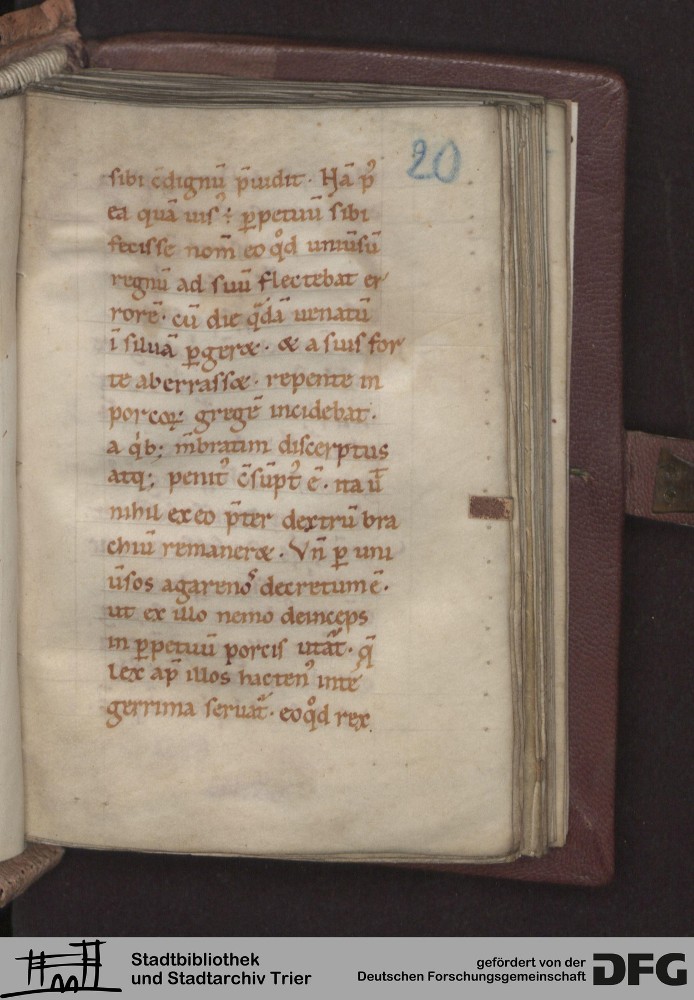 20
sibi c̄dignū p̄uidit · Ha̅ p᷒
ea quā uis᷒ : ꝑpetuū sibi
fecisse nom̄ eo qͦd uniūsū
regnū ad suū flectebat er
rorē · cū die q̄dā uenatū
ī siluā ꝑgeret · & a suis for
te aberrasset · repente in
porcoꝝ gregē incidebat ·
a qⁱb; m̄bratim discerptus
atq; penit᷒ c̄sūpt᷒ ē · ita ū
nihil ex eo p̄ter dextrū bra
chiū remaneret · Vn̄ ꝑ uni
ūsos agarenos decretum ē ·
ut ex illo nemo deinceps
in ꝑpetuū porcis utat᷑ · q̄
lex ap̄ illos hacten᷒ inte
gerrima seruat᷑ · eo qͦd rex
Stadtbibliothek
und Stadtarchiv Trier
gefördert von der
Deutschen Forschungsgemeinschaft
DFG